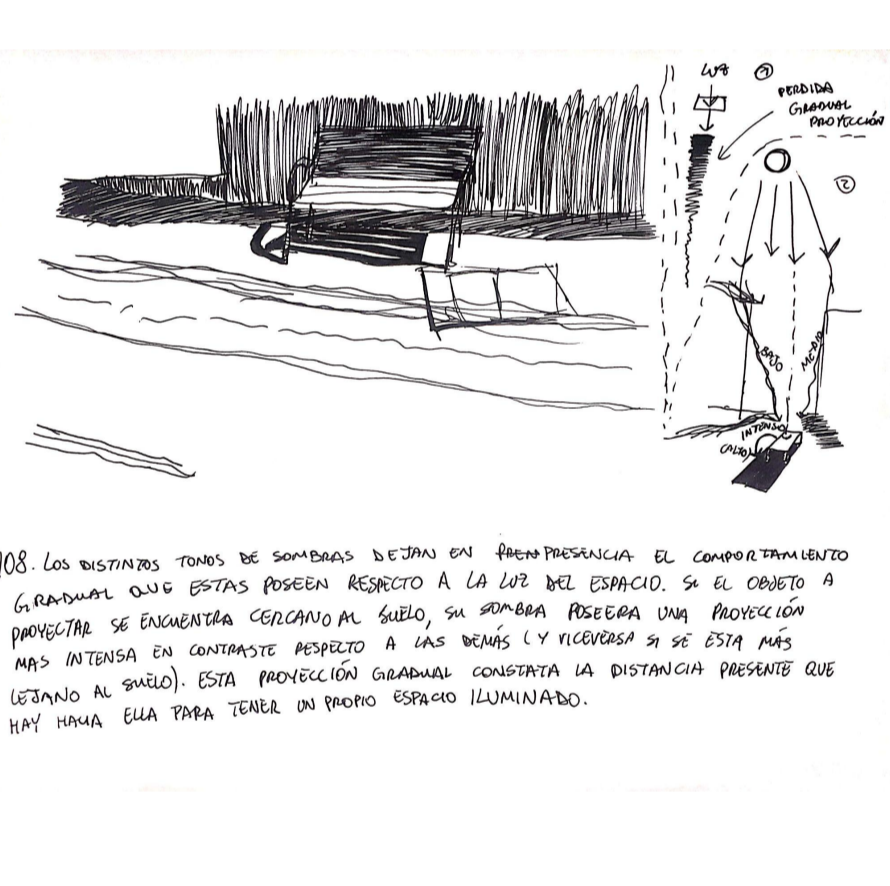 LUZ 1
PERDIDA
GRADUAL
PROYECCIÓN
2
BAJO
MEDIO
INTENSO
(ALTO)
108. LOS DISTINTOS TONOS DE SOMBRAS DEJAN EN PRESENCIA EL COMPORTAMIENTO
GRADUAL QUE ESTAS POSEEN RESPECTO A LA LUZ DEL ESPACIO. SI EL OBJETO A
PROYECTAR SE ENCUENTRA CERCANO AL SUELO, SU SOMBRA POSEERA UNA PROYECCIÓN
MAS INTENSA EN CONTRASTE RESPECTO A LAS DEMÁS (Y VICEVERSA SI SE ESTA MÁS
LEJANO AL SUELO). ESTA PROYECCIÓN GRADUAL CONSTATA LA DISTANCIA PRESENTE QUE
HAY HACIA ELLA PARA TENER UN PROPIO ESPACIO ILUMINADO.